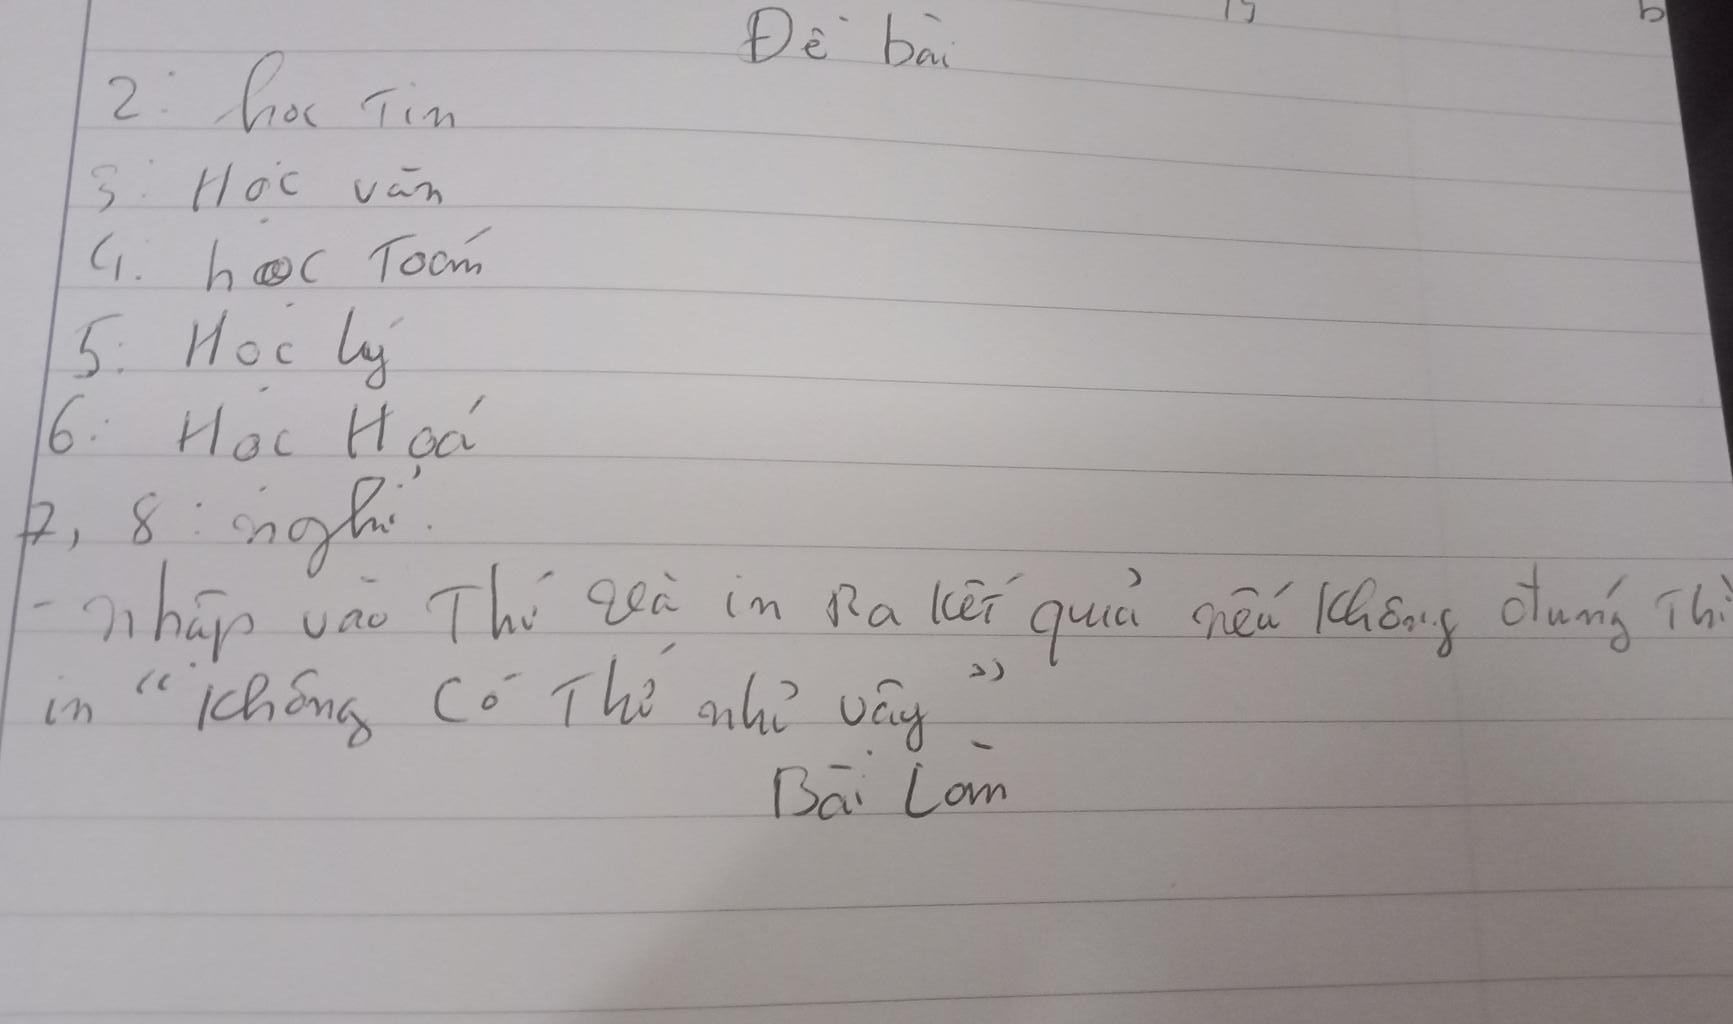 Đề bài
2: học Tin
3: Học văn
4. học Toán
5: Học lý
6: Học Hoá
7, 8: nghỉ.
- nhập vào Thứ và in Ra kết quả nếu không đúng Thì
in "không có Thứ như vậy"
Bài Làm